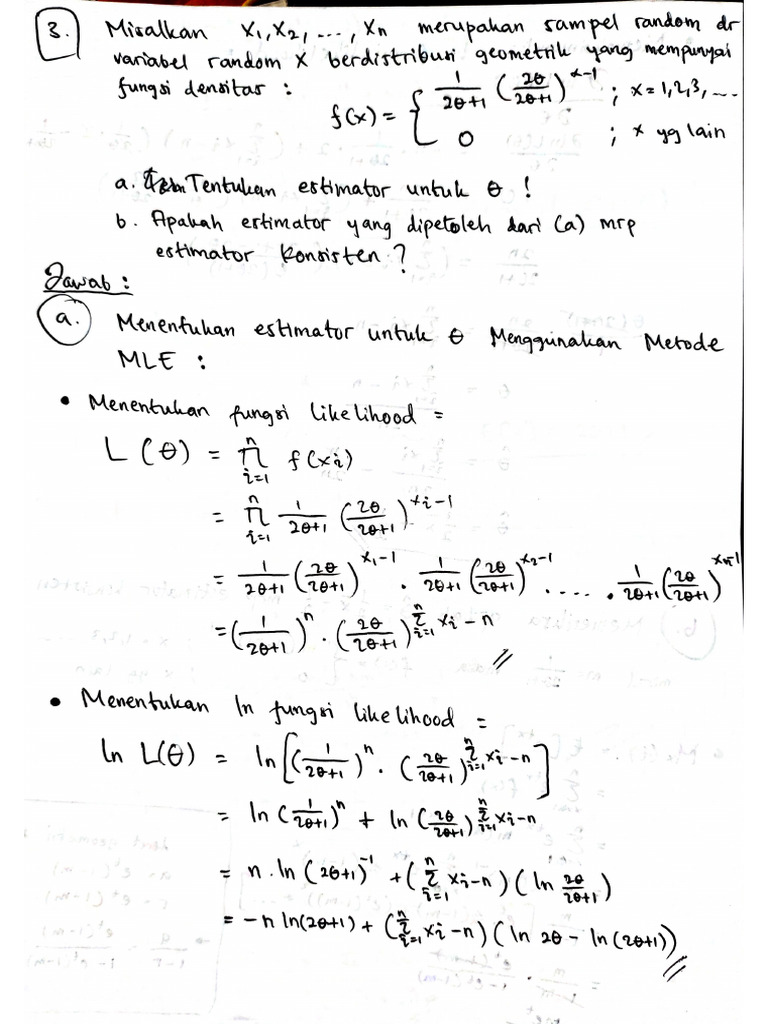 3. Misalkan X₁, X₂, ..., Xn merupakan sampel random dr
variabel random X berdistribusi geometrik yang mempunyai
fungsi densitas :
f(x) = { 1/(2θ+1) (2θ/(2θ+1))^(x-1) ; x = 1,2,3, ....
0 ; x yg lain
a. Tentukan estimator untuk θ !
b. Apakah estimator yang dipetoleh dari (a) mrp
estimator konsisten ?
Jawab :
a. Menentukan estimator untuk θ Menggunakan Metode
MLE :
• Menentukan fungsi likelihood =
L(θ) = ∏_{i=1}^{n} f(xi)
= ∏_{i=1}^{n} 1/(2θ+1) (2θ/(2θ+1))^(xi-1)
= 1/(2θ+1) (2θ/(2θ+1))^(x₁-1) . 1/(2θ+1) (2θ/(2θ+1))^(x₂-1) . .... . 1/(2θ+1) (2θ/(2θ+1))^(xn-1)
= (1/(2θ+1))^n . (2θ/(2θ+1))^(∑_{i=1}^{n} xi - n) //
• Menentukan ln fungsi likelihood =
ln L(θ) = ln [(1/(2θ+1))^n . (2θ/(2θ+1))^(∑_{i=1}^{n} xi - n)]
= ln (1/(2θ+1))^n + ln (2θ/(2θ+1))^(∑_{i=1}^{n} xi - n)
= n . ln (2θ+1)^-1 + (∑_{i=1}^{n} xi - n) (ln 2θ/(2θ+1))
= -n ln(2θ+1) + (∑_{i=1}^{n} xi - n) (ln 2θ - ln(2θ+1)) //